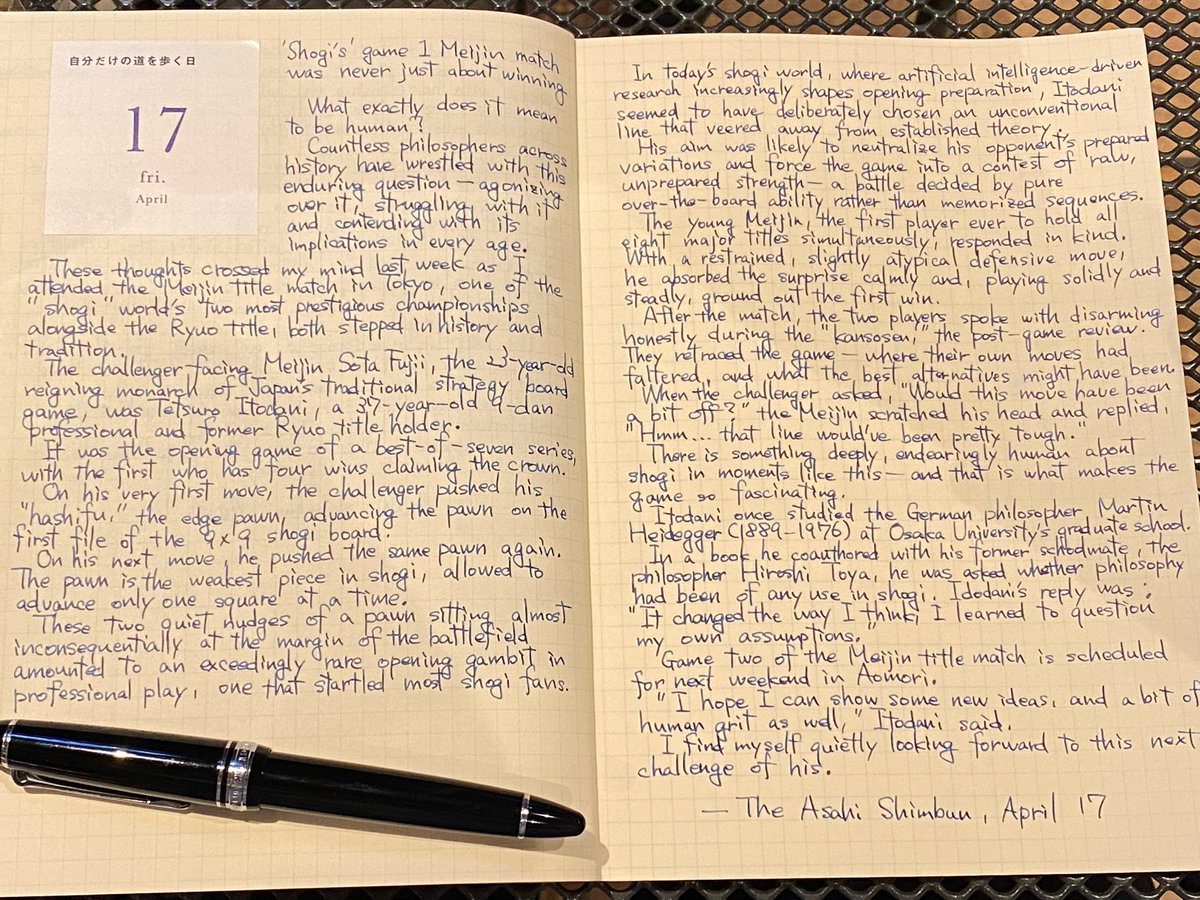 自分だけの道を歩く日
17
fri.
April
'Shogi's' game 1 Meijin match
was never just about winning
What exactly does it mean
to be human?
Countless philosophers across
history have wrestled with this
enduring question — agonizing
over it, struggling with it
and contending with its
implications in every age.
These thoughts crossed my mind last week as I
attended the Meijin title match in Tokyo, one of the
"shogi" world's two most prestigious championships
alongside the Ryuo title, both stepped in history and
tradition.
The challenger facing Meijin Sota Fujii, the 23-year-old
reigning monarch of Japan's traditional strategy board
game, was Tetsuro Itodani, a 37-year-old 9-dan
professional and former Ryuo title holder.
It was the opening game of a best-of-seven series,
with the first who has four wins claiming the crown.
On his very first move, the challenger pushed his
"hashifu," the edge pawn, advancing the pawn on the
first file of the 9×9 shogi board.
On his next move, he pushed the same pawn again.
The pawn is the weakest piece in shogi, allowed to
advance only one square at a time.
These two quiet nudges of a pawn sitting almost
inconsequentially at the margin of the battlefield
amounted to an exceedingly rare opening gambit in
professional play, one that startled most shogi fans.
In today's shogi world, where artificial intelligence-driven
research increasingly shapes opening preparation, Itodani
seemed to have deliberately chosen an unconventional
line that veered away from established theory.
His aim was likely to neutralize his opponent's prepared
variations and force the game into a contest of raw,
unprepared strength — a battle decided by pure
over-the-board ability rather than memorized sequences.
The young Meijin, the first player ever to hold all
eight major titles simultaneously, responded in kind.
With a restrained, slightly atypical defensive move,
he absorbed the surprise calmly and, playing solidly and
steadly, ground out the first win.
After the match, the two players spoke with disarming
honestly during the "kansosen," the post-game review.
They retraced the game — where their own moves had
faltered, and what the best alternatives might have been.
When the challenger asked, "Would this move have been
a bit off?" the Meijin scratched his head and replied,
"Hmm... that line would've been pretty tough."
There is something deeply, endearingly human about
shogi in moments like this — and that is what makes the
game so fascinating.
Itodani once studied the German philosopher, Martin
Heidegger (1889-1976) at Osaka University's graduate school.
In a book he coauthored with his former schoolmate, the
philosopher Hiroshi Toya, he was asked whether philosophy
had been of any use in shogi. Idodani's reply was:
"It changed the way I think; I learned to question
my own assumptions."
Game two of the Meijin title match is scheduled
for next weekend in Aomori.
"I hope I can show some new ideas, and a bit of
human grit as well," Itodani said.
I find myself quietly looking forward to this next
challenge of his.
— The Asahi Shimbun, April 17